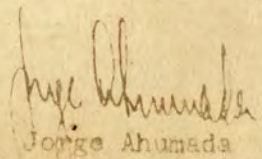 Jorge Ahumada
Jorge Ahumada